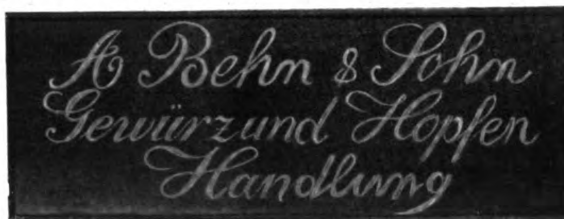 A Behn & Sohn
Gewürz und Hopfen
Handlung